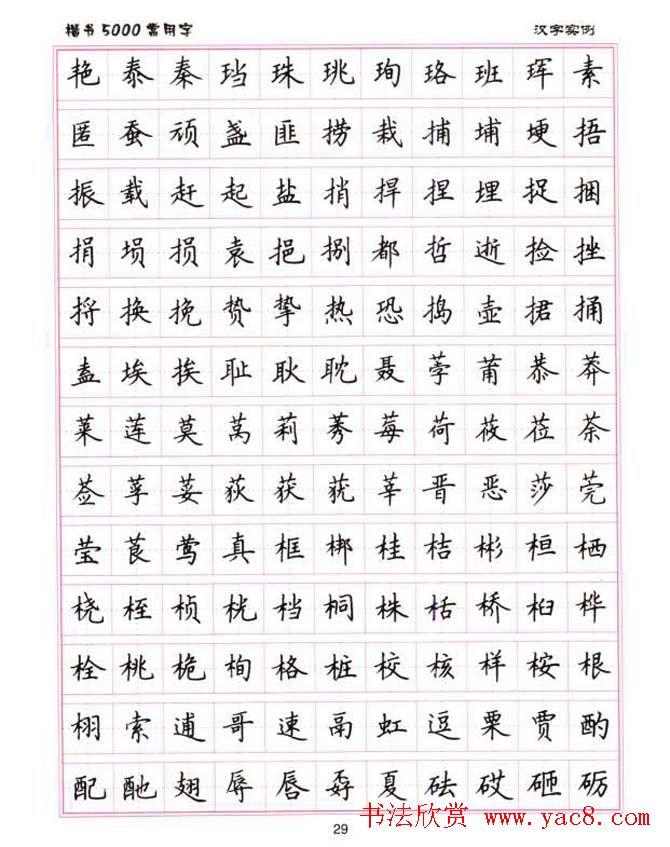 楷书5000常用字 汉字实例
艳泰秦珰珠珧珣珞班珲素
匿蚕顽盏匪捞栽捕埔埂捂
振载赶起盐捎捍捏埋捉捆
捐埙损袁挹捌都哲逝捡挫
捋换挽贽挚热恐捣壶捃捅
盍埃挨耻耿耽聂荸莆恭莽
莱莲莫莴莉莠莓荷莜莅荼
莶莩荽荻获莸莘晋恶莎莞
莹莨莺真框梆桂桔彬桓栖
桡桎桢桄档桐株栝桥桕桦
栓桃桅栒格桩校核样桉根
栩索逋哥速鬲虹逗栗贾酌
配酏翅辱唇孬夏砝砹砸砺
书法欣赏 www.yac8.com
29